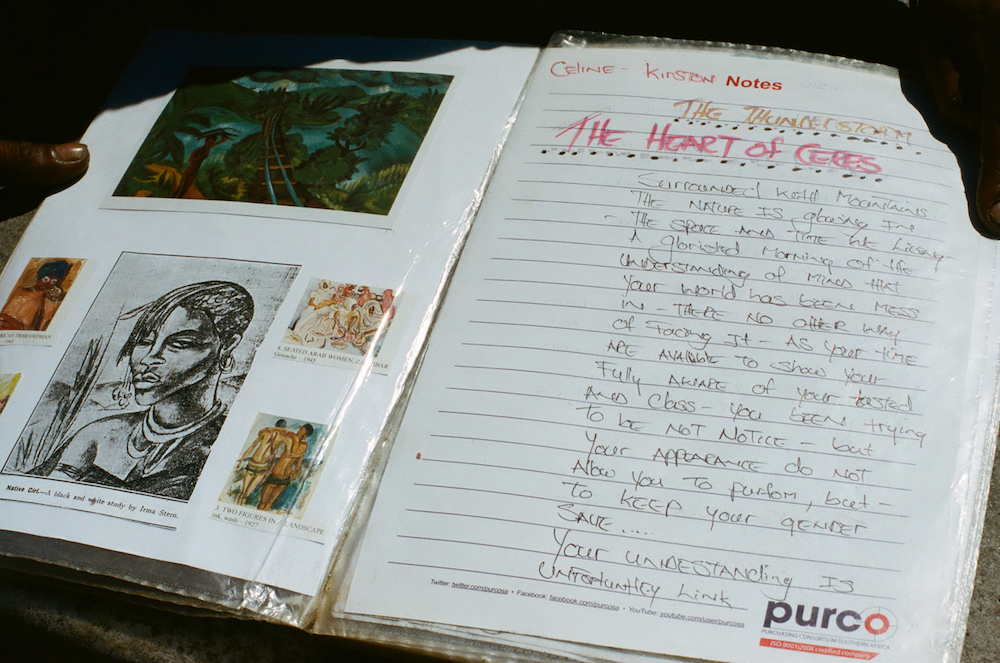 RICAN TRIBESWOMAN
4. SEATED ARAB WOMEN, ZANZIBAR
Gouache – 1945
Native Girl.—A black and white study by Irma Stern.
3. TWO FIGURES IN A LANDSCAPE
ink, wash – 1927
CELINE - KIRSTON Notes
THE THUNDERSTORM
THE HEART OF CERES
SURROUNDED KOID MOUNTAINS
THE NATURE IS glowing IN
THE SPACE AND TIME WE
A gloristed MORNING OF life
UNDERSTANDING OF MIND THAT
YOUR WORLD HAS BEEN MESS
IN - THERE NO OTHER WAY
OF FACING IT - AS YOUR TIME
ARE AVAILABLE TO SHOW YOUR
FULLY AWARE OF YOUR tasted
AND CLASS - YOU BEEN TRYING
TO BE NOT NOTICE - but
YOUR APPEARANCE DO NOT
Allow YOU TO PURFOM, but -
TO KEEP YOUR GENDER
SAVE....
YOUR UNDESTANDING IS
UNFORTUNTLEY LINK
Twitter: twitter.com/purcosa • Facebook: facebook.com/purcosa • YouTube: youtube.com/user/purcosa
purco
PURCHASING CONSORTIUM SOUTHERN AFRICA
ISO 9001:2008 certified company